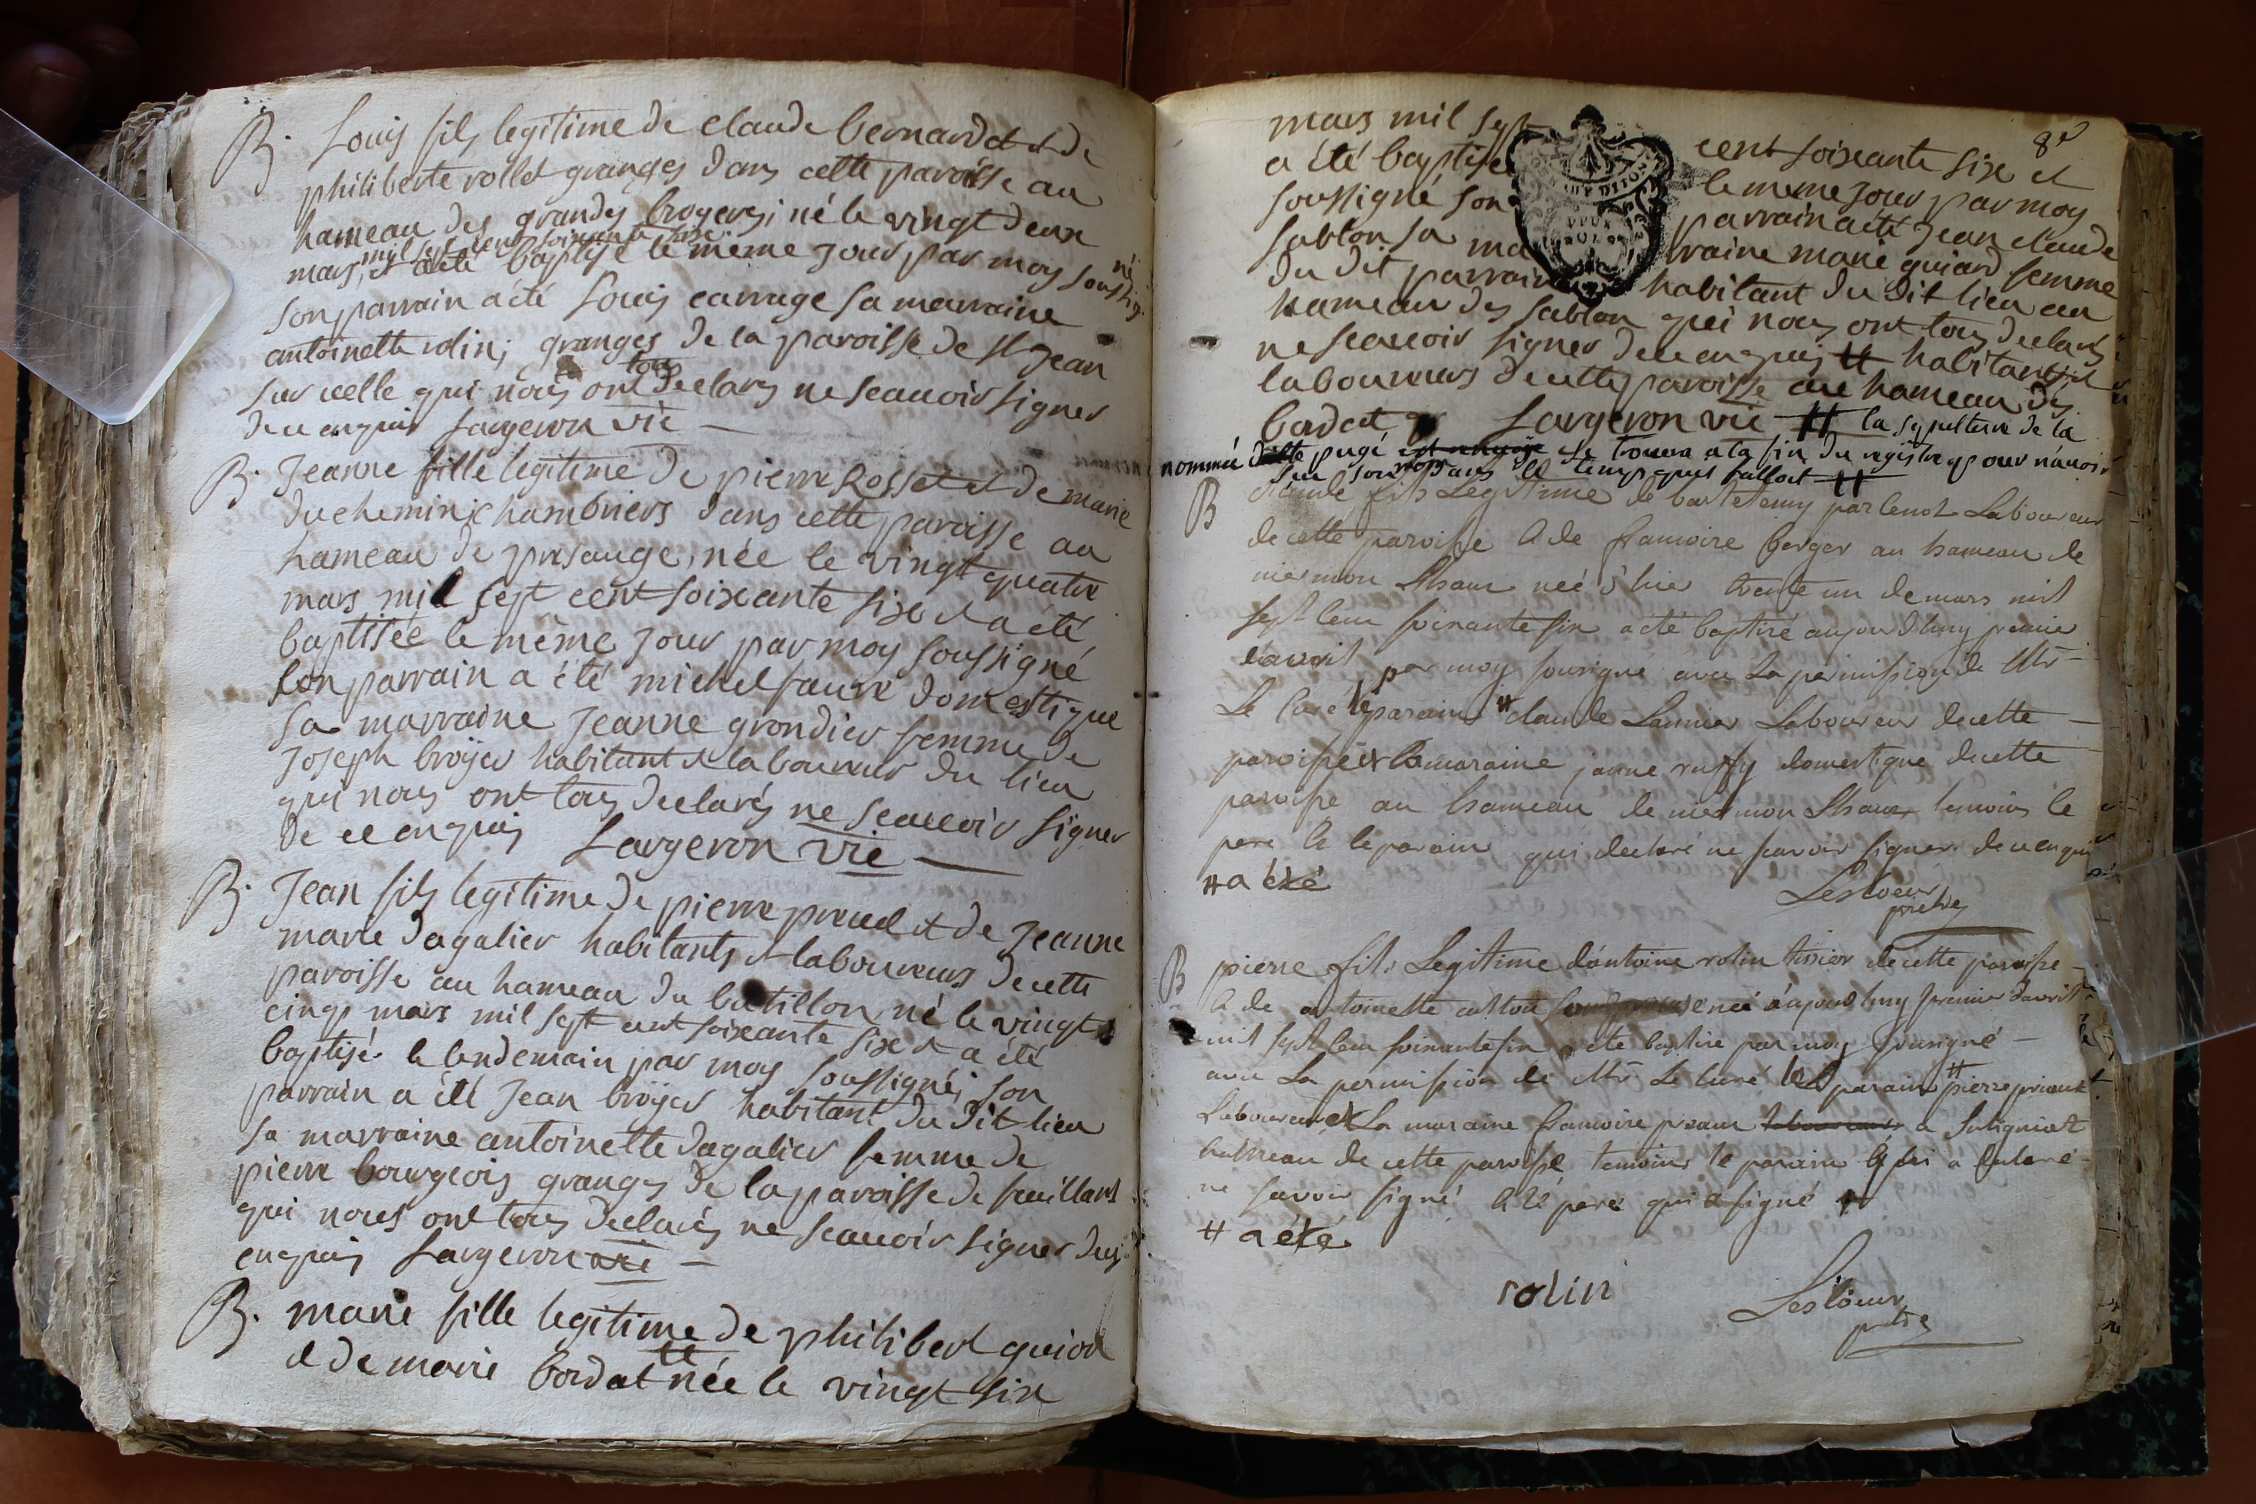 B. Louis fils legitime de claude bernardet et de
philiberte rollet granges dans cette paroisse au
hameau des grandes broyeres; né le vingt deux
mil sept cent soixante six
mars, et a été baptisé le même jour par moy soussigné
son parrain a été Louis carruge sa marraine
antoinette rolin; granges de la paroisse de st Jean
sur celle qui nous ont tous declarés ne scauoir signer
de ce enquis Largeron vic
B. Jeanne fille legitime de pierre Rosset et de marie
duchemin; chambriers dans cette paroisse au
hameau de presange, née le vingt quatre
mars mil sept cent soixante six et a été
baptisée le même jour par moy soussigné
son parrain a été michel faure domestique
sa marraine Jeanne grondier femme de
Joseph broyer habitant et laboureur du lieu
qui nous ont tous declarés ne scauoir signer
de ce enquis Largeron vic
B. Jean fils legitime de pierre preud et de Jeanne
marie dagalier habitants et laboureurs de cette
paroisse au hameau du batillon né le vingt
cinq mars mil sept cent soixante six et a été
baptisé le lendemain par moy soussigné; son
parrain a été Jean broyer habitant du dit lieu
sa marraine antoinette dagalier femme de
pierre bourgeois granges de la paroisse de feuillans
qui nous ont tous declarés ne scauoir signer de ce
enquis Largeron vic
B. marie fille legitime de philibert guiard
et de marie bordat # née le vingt six
8e
mars mil sept cent soixante six et
a été baptisé le meme jour par moy
soussigné son parrain a été Jean claude
sablon sa marraine marie guiard femme
du dit parrain habitant du dit lieu au
hameau des sablon qui nous ont tous declarés
ne scauoir signer de ce enquis # habitants et
laboureurs de cette paroisse au hameau des
bordat Largeron vic # la sepulture de la
nommée pugé se trouera a la fin du registre pour n'auoir
sceu son nom dans le temp quil falloit #
B claude fils Legitime de bartelemy parlenot Laboureur
de cette paroisse & de framoire berger au hameau de
mermon né d'hier trente un de mars mil
sept cent soixante six a été baptisé aujourdhuy premier
davril par moy sousigné avec la permission de Mr
Le Curé le parain # claude Lannier Laboureur de cette
paroisse et la maraine janne ruffy domestique de cette
paroisse au hameau de mermon temoins le
pere & le parain qui declaré ne savoir signer de ce enquis
# a été Lescoeur
pretre
B pierre fils Legitime d'antoine rolin tissier de cette paroisse
& de antoinette né aujourdhuy premier davril
mil sept cent soixante six a été baptisé par moy sousigné
avec La permission de Mr Le curé le parain # pierre
Laboureur et La maraine framoire preaux a Suligniat
hameau de cette paroisse temoins le parain qui a declaré
ne savoir signé & le pere qui a signé
# a été
rolin Lescoeur
pretre